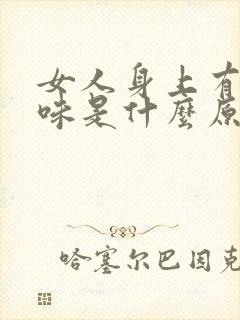 女人身上有
味是什麼原
哈塞尔巴因克